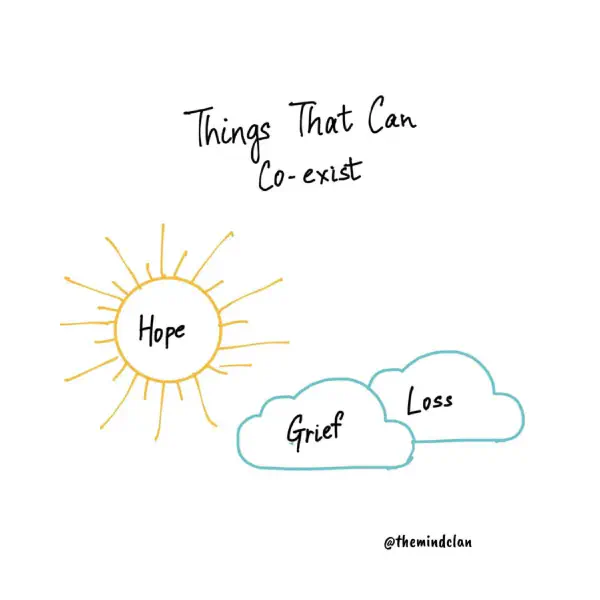 Things That Can
Co-exist
Hope
Loss
Grief
@themindclan